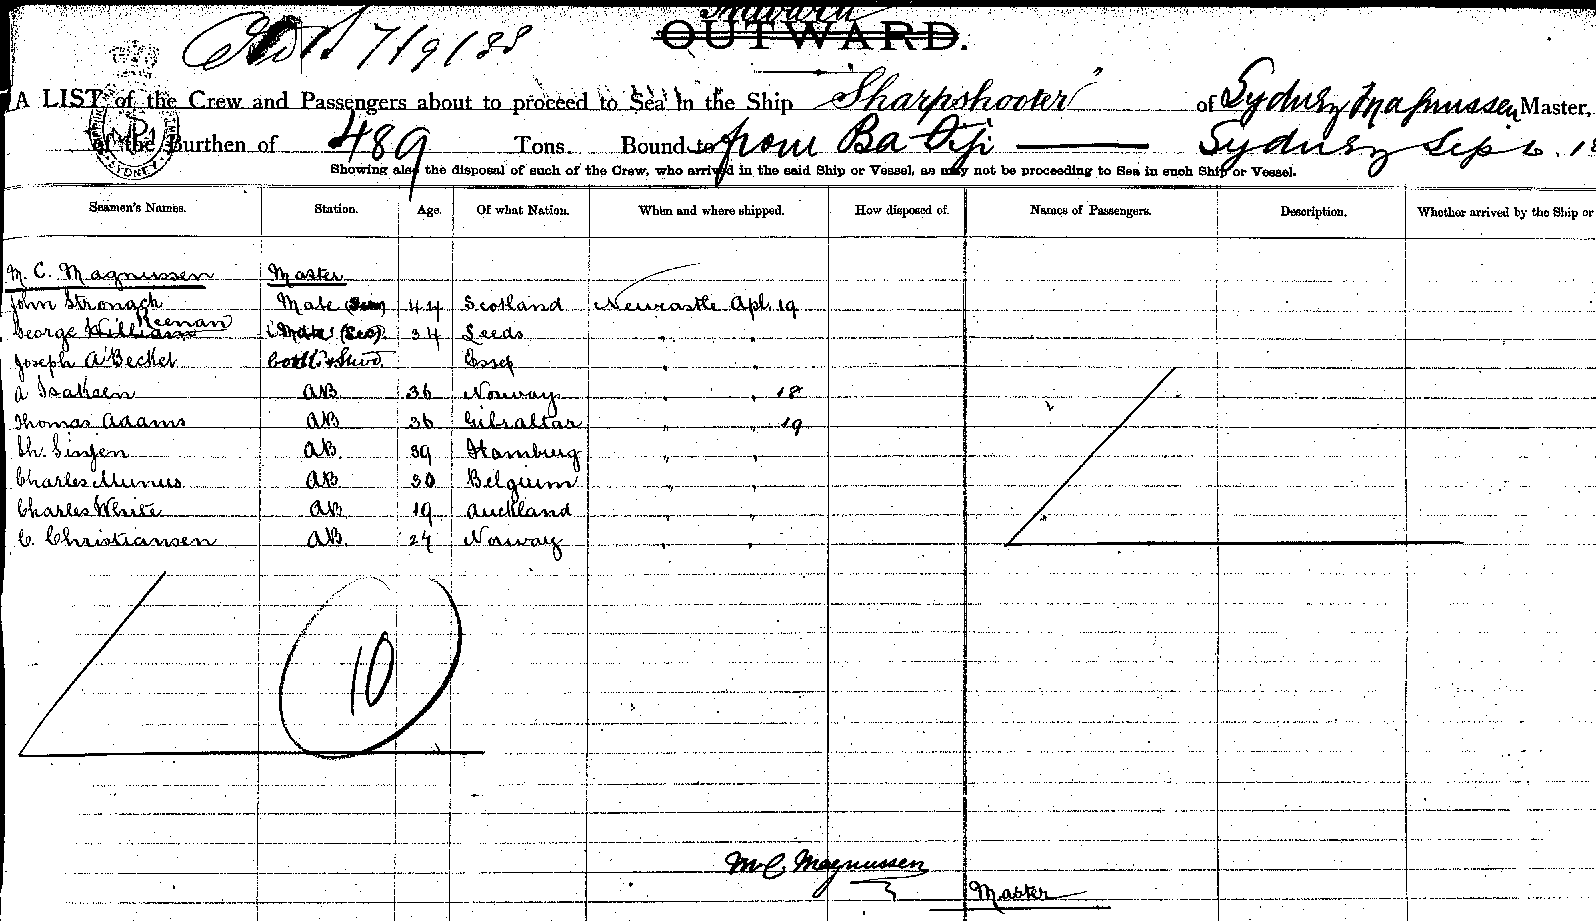 7/9/88
Inward
OUTWARD.
A LIST of the Crew and Passengers about to proceed to Sea in the Ship "Sharpshooter" of Sydney Magnussen Master,
of the Burthen of 489 Tons. Bound to from Ba Fiji Sydney Sep 6. 18
Showing also the disposal of such of the Crew, who arrived in the said Ship or Vessel, as may not be proceeding to Sea in such Ship or Vessel.
Seamen's Names. Station. Age. Of what Nation. When and where shipped. How disposed of. Names of Passengers. Description. Whether arrived by the Ship or
M. C. Magnussen Master
John Stronach Mate 44 Scotland Newcastle Apl. 19
Keenan
George Williams Mate 34 Leeds " "
Joseph A'Becket Cook & Stwd. Essex " "
A Isaksen AB 36 Norway " 18
Thomas Adams AB 36 Gibraltar " 19
Ch. AB. 39 Hamburg " "
Charles AB 30 Belgium " "
Charles White AB 19 Auckland " "
C. Christiansen AB. 24 Norway " "
10
M C Magnussen
Master